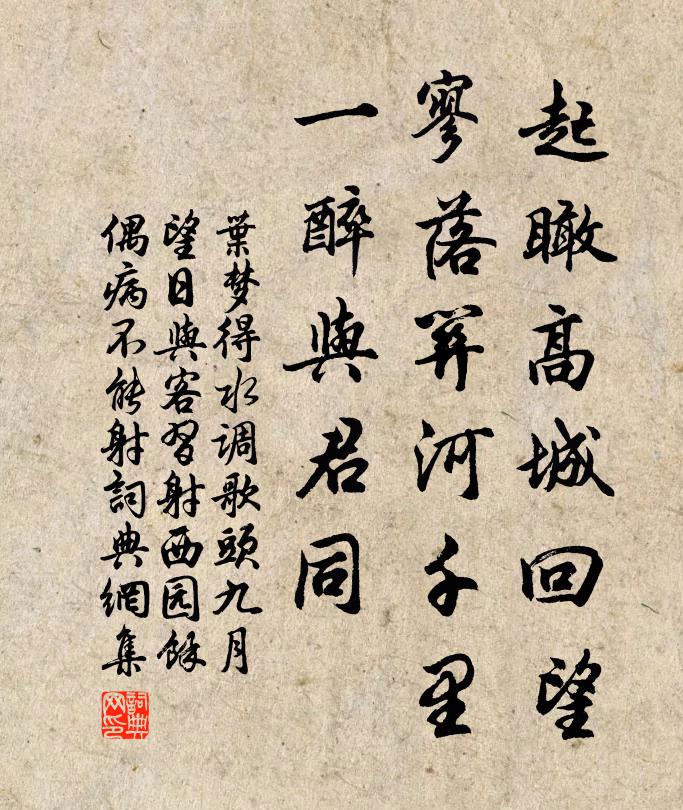 起瞰高城回望
寥落關河千里
一醉與君同
葉梦得水调歌頭九月
望日與客習射西园餘
偶病不能射詞典網集
詞典
网印